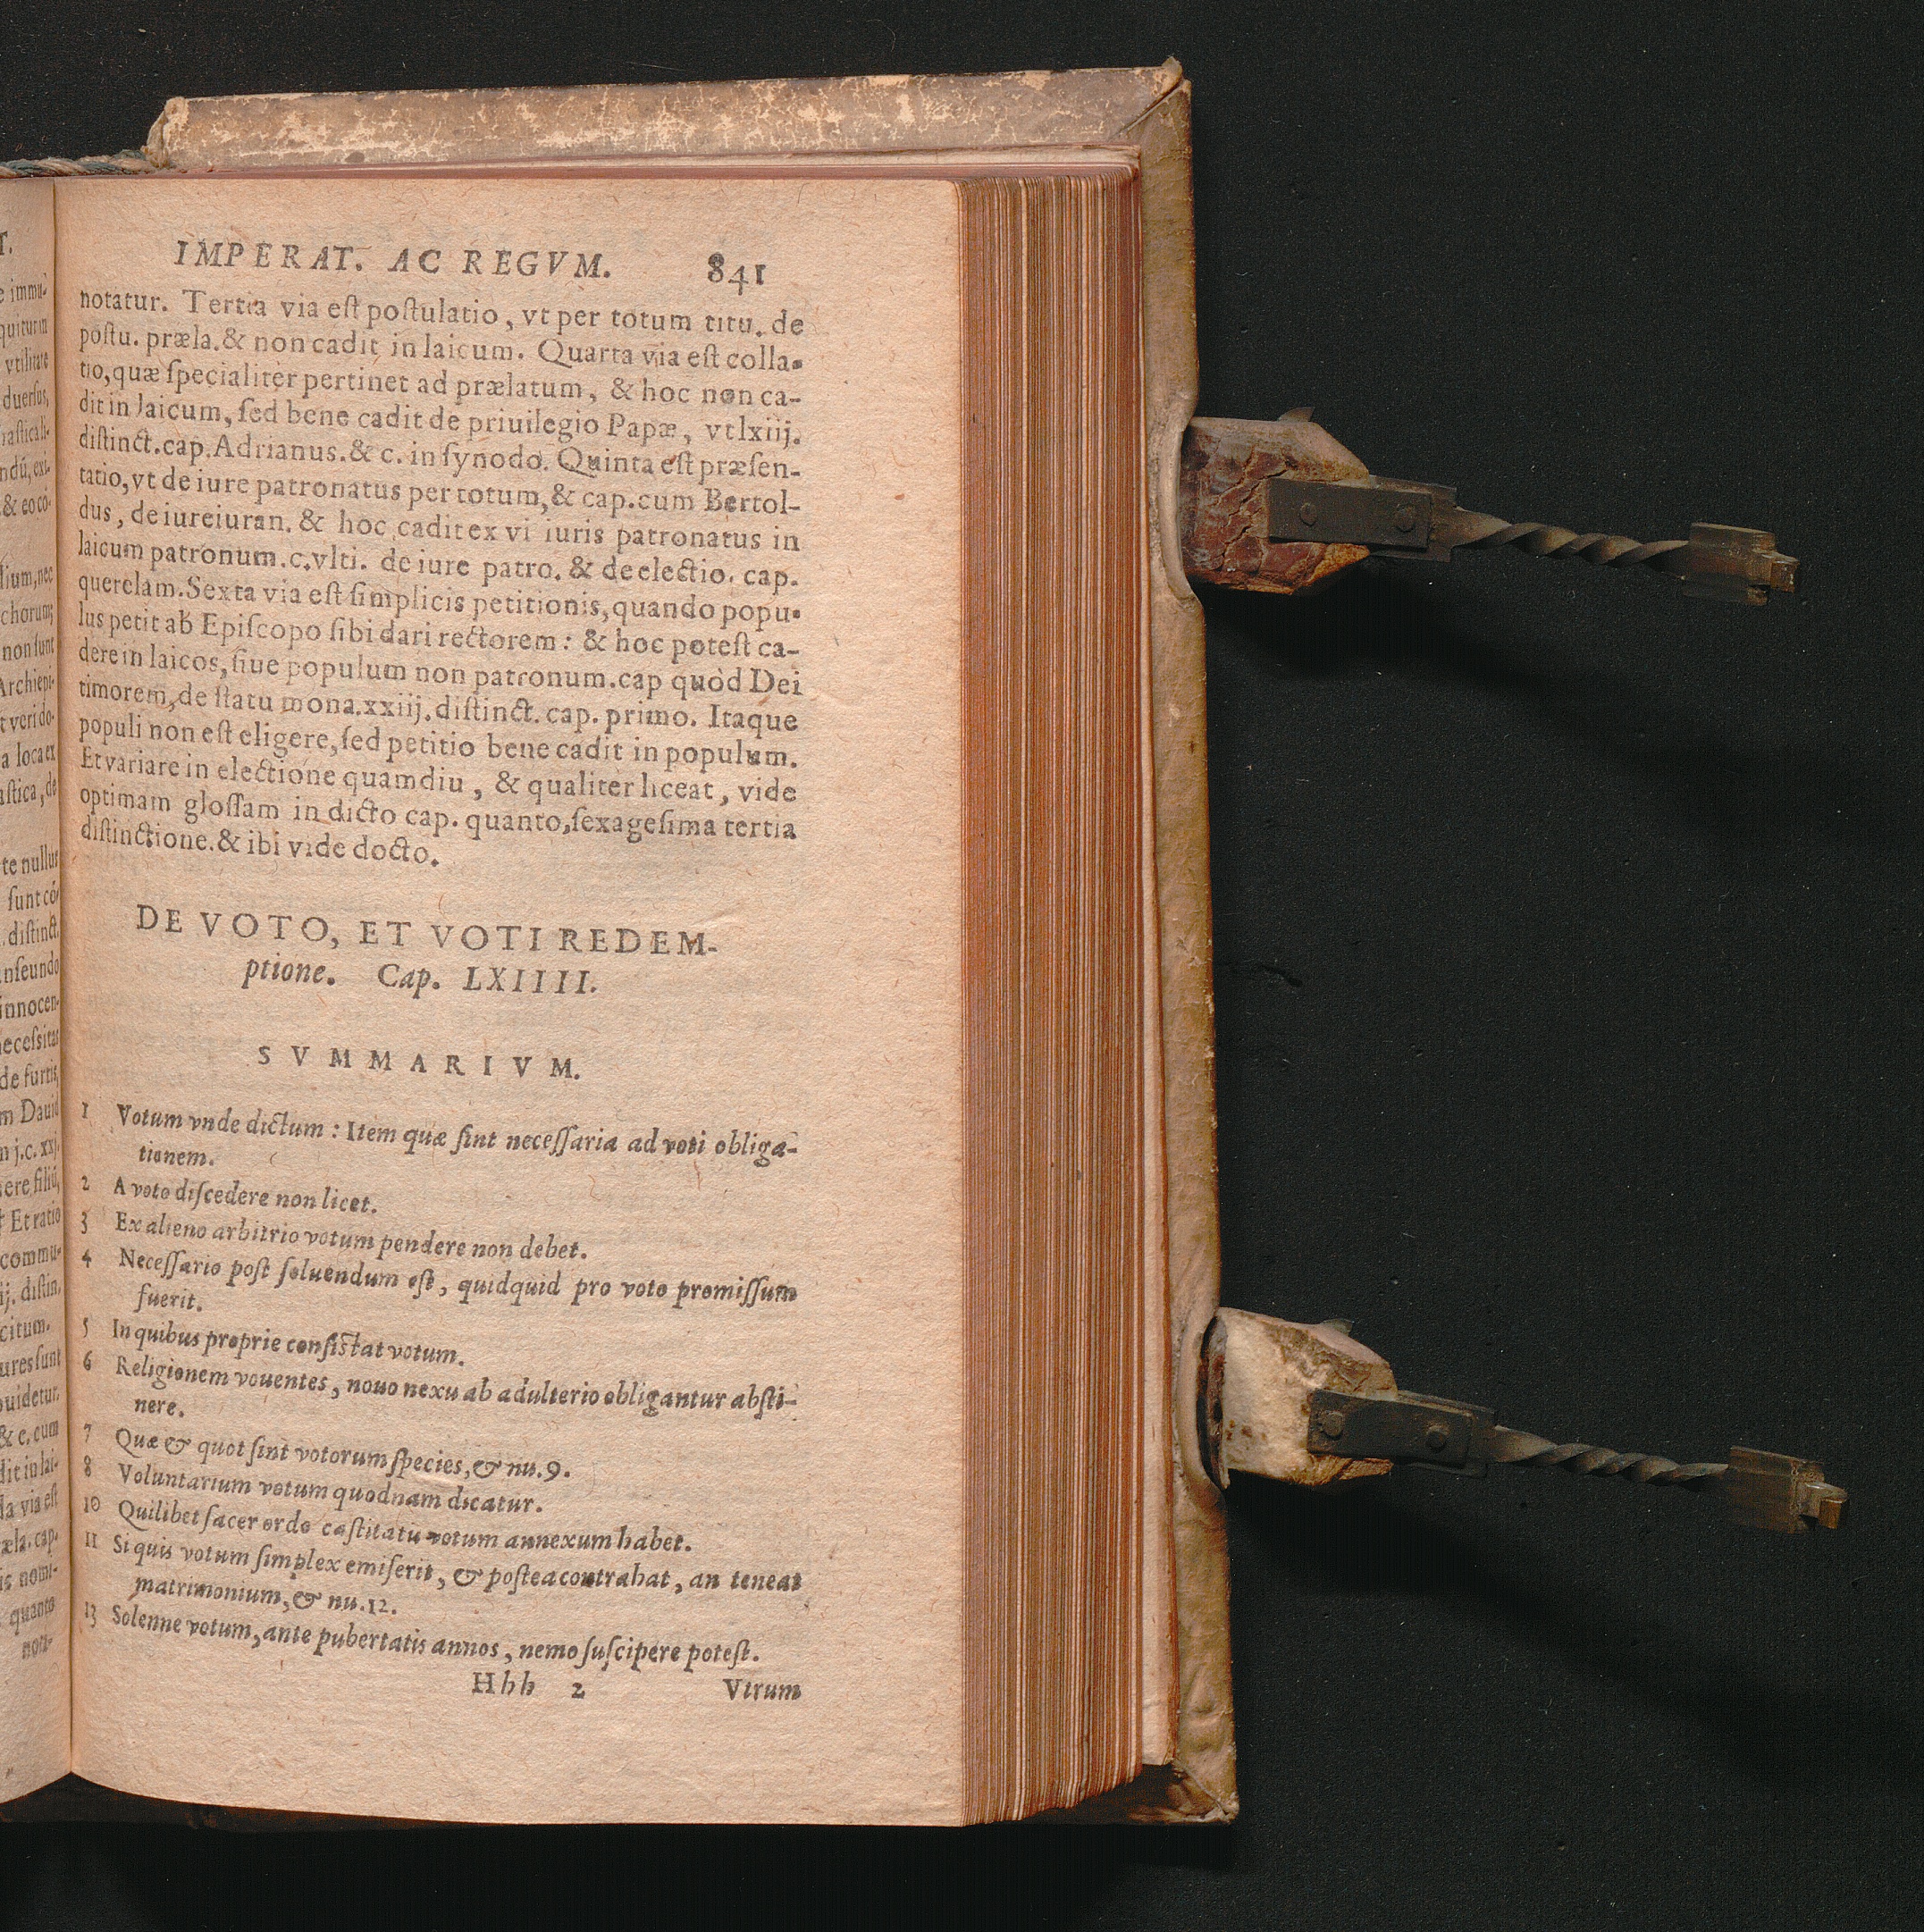 IMPERAT. AC REGVM. 841
notatur. Tertia via eſt poſtulatio, vt per totum titu. de
poſtu. præla. & non cadit in laicum. Quarta via eſt colla-
tio, quæ ſpecialiter pertinet ad prælatum, & hoc non ca-
dit in laicum, ſed bene cadit de priuilegio Papæ, vt lxiij.
diſtinct. cap. Adrianus. & c. in ſynodo. Quinta eſt præſen-
tatio, vt de iure patronatus per totum, & cap. cum Bertol-
dus, de iureiuran. & hoc cadit ex vi iuris patronatus in
laicum patronum. c. vlti. de iure patro. & de electio. cap.
querelam. Sexta via eſt ſimplicis petitionis, quando popu-
lus petit ab Epiſcopo ſibi dari rectorem: & hoc poteſt ca-
dere in laicos, ſiue populum non patronum. cap quòd Dei
timorem, de ſtatu mona. xxiij. diſtinct. cap. primo. Itaque
populi non eſt eligere, ſed petitio bene cadit in populum.
Et variare in electione quamdiu, & qualiter liceat, vide
optimam gloſſam in dicto cap. quanto, ſexageſima tertia
diſtinctione. & ibi vide docto.
DE VOTO, ET VOTI REDEM-
ptione. Cap. LXIIII.
SVMMARIVM.
1 Votum vnde dictum: Item quæ ſint neceſſaria ad voti obliga-
tionem.
2 A voto diſcedere non licet.
3 Ex alieno arbitrio votum pendere non debet.
4 Neceſſario poſt ſoluendum eſt, quidquid pro voto promiſſum
fuerit.
5 In quibus proprie conſiſtat votum.
6 Religionem vouentes, nouo nexu ab adulterio obligantur abſti-
nere.
7 Quæ & quot ſint votorum ſpecies, & nu. 9.
8 Voluntarium votum quodnam dicatur.
10 Quilibet ſacer ordo caſtitatis votum annexum habet.
11 Si quis votum ſimplex emiſerit, & poſtea contrahat, an teneat
matrimonium, & nu. 12.
13 Solenne votum, ante pubertatis annos, nemo ſuſcipere poteſt.
Hhh 2 Vtrum